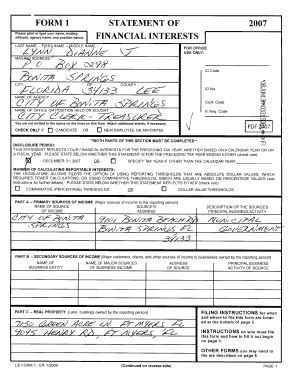 FORM 1
STATEMENT OF
2007
Please print or type your name, mailing address, agency name, and position below:
FINANCIAL INTERESTS
LAST NAME -- FIRST NAME -- MIDDLE NAME :
FOR OFFICE USE ONLY:
LYNN DIANNE J
MAILING ADDRESS :
P O BOX 2298
BONITA SPRINGS
ID Code
CITY : ZIP : COUNTY :
FLORIDA 34133 LEE
ID No.
NAME OF AGENCY :
CITY OF BONITA SPRINGS
Conf. Code
NAME OF OFFICE OR POSITION HELD OR SOUGHT :
P. Req. Code
CITY CLERK - TREASURER
You are not limited to the space on the lines on this form. Attach additional sheets, if necessary.
PDF 2007
CHECK ONLY IF CANDIDATE OR NEW EMPLOYEE OR APPOINTEE
**BOTH PARTS OF THIS SECTION MUST BE COMPLETED**
DISCLOSURE PERIOD:
THIS STATEMENT REFLECTS YOUR FINANCIAL INTERESTS FOR THE PRECEDING TAX YEAR, WHETHER BASED ON A CALENDAR YEAR OR ON
A FISCAL YEAR. PLEASE STATE BELOW WHETHER THIS STATEMENT IS FOR THE PRECEDING TAX YEAR ENDING EITHER (check one):
DECEMBER 31, 2007 OR SPECIFY TAX YEAR IF OTHER THAN THE CALENDAR YEAR:
MANNER OF CALCULATING REPORTABLE INTERESTS:
THE LEGISLATURE ALLOWS FILERS THE OPTION OF USING REPORTING THRESHOLDS THAT ARE ABSOLUTE DOLLAR VALUES, WHICH
REQUIRES FEWER CALCULATIONS, OR USING COMPARATIVE THRESHOLDS, WHICH ARE USUALLY BASED ON PERCENTAGE VALUES (see
instructions for further details). PLEASE STATE BELOW WHETHER THIS STATEMENT REFLECTS EITHER (check one):
COMPARATIVE (PERCENTAGE) THRESHOLDS OR DOLLAR VALUE THRESHOLDS
PART A -- PRIMARY SOURCES OF INCOME [Major sources of income to the reporting person]
NAME OF SOURCE OF INCOME
SOURCE'S ADDRESS
DESCRIPTION OF THE SOURCE'S PRINCIPAL BUSINESS ACTIVITY
CITY OF BONITA SPRINGS
9101 BONITA BEACH RD
BONITA SPRINGS, FL
34133
MUNICIPAL
GOVERNMENT
PART B -- SECONDARY SOURCES OF INCOME [Major customers, clients, and other sources of income to businesses owned by the reporting person]
NAME OF BUSINESS ENTITY
NAME OF MAJOR SOURCES OF BUSINESS' INCOME
ADDRESS OF SOURCE
PRINCIPAL BUSINESS ACTIVITY OF SOURCE
PART C -- REAL PROPERTY [Land, buildings owned by the reporting person]
7150 GREEN ACRE LN FT MYERS, FL
4045 HENRY RD, FT MYERS, FL
FILING INSTRUCTIONS for when and where to file this form are located at the bottom of page 2.
INSTRUCTIONS on who must file this form and how to fill it out begin on page 3.
OTHER FORMS you may need to file are described on page 6.
CE FORM 1 - Eff. 1/2008 (Continued on reverse side) PAGE 1